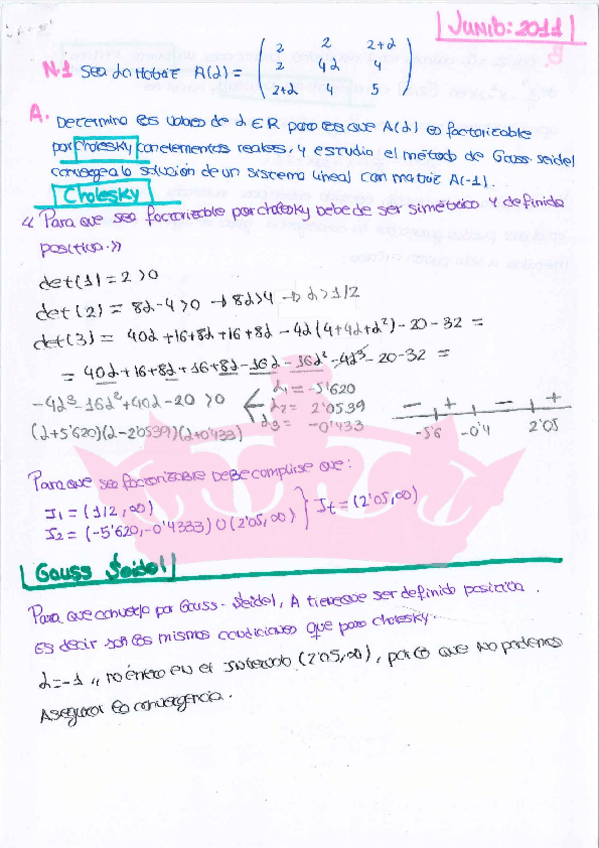 JUNIO: 2011
N.1 Sea la Matriz A(α) = ( 2 2 2+α
2 4α 4
2+α 4 5 )
A. Determina los valores de α ∈ R para los que A(α) es factorizable
por Cholesky con elementos reales, y estudia el método de Gauss-Seidel
converge a la solución de un sistema lineal con matriz A(-1).
Cholesky
" Para que sea factorizable por cholesky debe de ser simétrica y definida
positiva. "
det(1) = 2 > 0
det(2) = 8α - 4 > 0 → 8α > 4 → α > 1/2
det(3) = 40α + 16 + 8α + 16 + 8α - 4α(4 + 4α + α²) - 20 - 32 =
= 40α + 16 + 8α + 16 + 8α - 16α - 16α² - 4α³ - 20 - 32 =
-4α³ - 16α² + 40α - 20 > 0 α₁ = -5'620
α₂ = 2'0539
(α+5'620)(α-2'0539)(α+0'433) α₃ = -0'433
- + - +
-5'6 -0'4 2'05
Para que sea factorizable debe cumplirse que:
J₁ = (1/2, ∞)
J₂ = (-5'620, -0'4333) ∪ (2'05, ∞) } Jt = (2'05, ∞)
Gauss Seidel
Para que converja por Gauss-Seidel, A tiene que ser definida positiva.
Es decir son las mismas condiciones que para cholesky.
α = -1 no entra en el Intervalo (2'05, ∞), por lo que no podemos
Asegurar la convergencia.